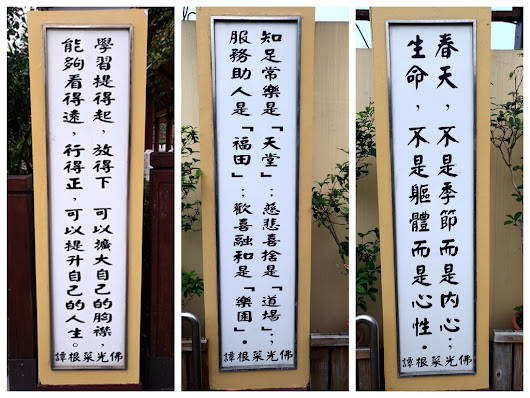 學習提得起,放得下 可以擴大自己的胸襟,
能夠看得遠,行得正,可以提升自己的人生。
佛光菜根譚
知足常樂是『天堂』;慈悲喜捨是『道場』;
服務助人是『福田』;歡喜融和是『樂園』。
佛光菜根譚
春天,不是季節而是內心;
生命,不是軀體而是心性。
佛光菜根譚